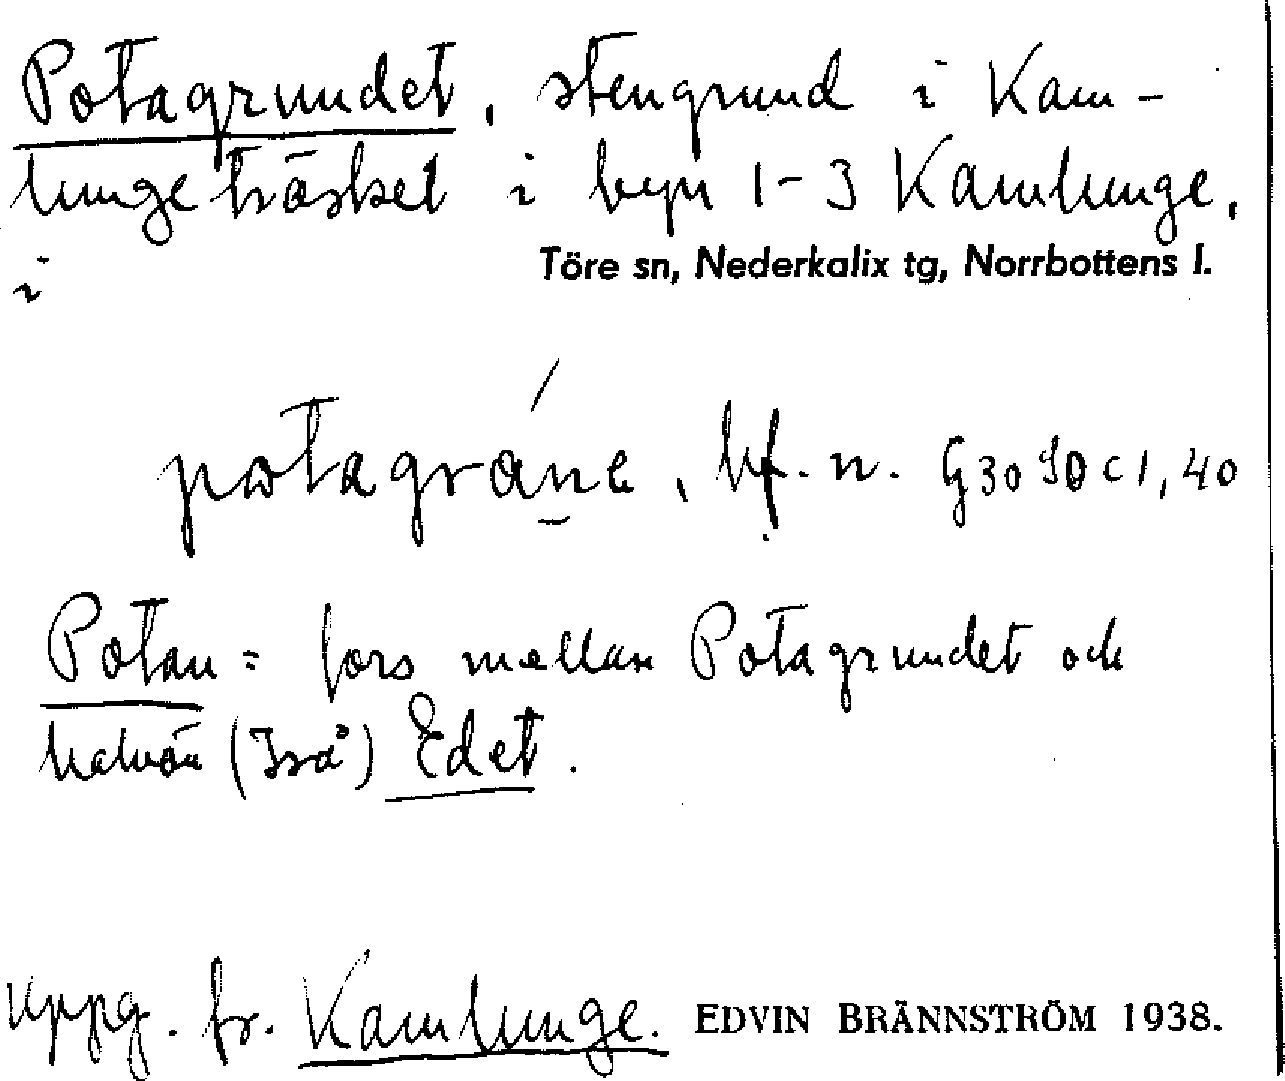 Potagrundet, stengrund i Kam-
lungeträsket i byn 1-3 Kamlunge,
i Töre sn, Nederkalix tg, Norrbottens l.
potagráne, bf. n. G30 SO c1, 40
Potan = fors mellan Potagrundet och
halvön (Iså) Edet.
Uppg. fr. Kamlunge. EDVIN BRÄNNSTRÖM 1938.